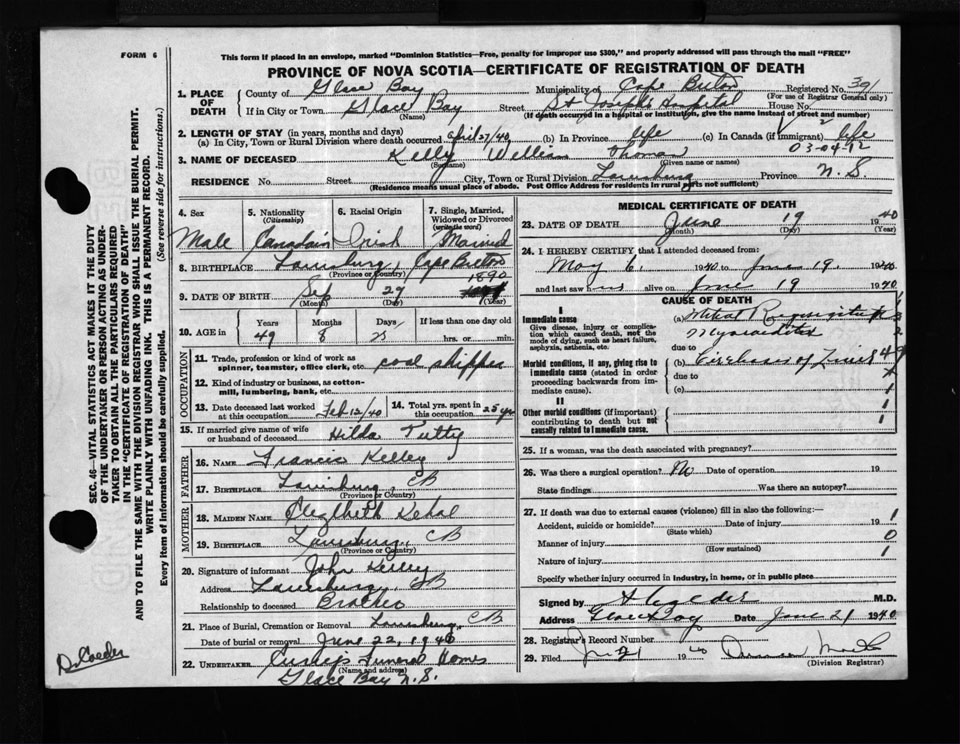 FORM 6
This form if placed in an envelope, marked "Dominion Statistics—Free, penalty for improper use $300," and properly addressed will pass through the mail "FREE"
PROVINCE OF NOVA SCOTIA—CERTIFICATE OF REGISTRATION OF DEATH
1. PLACE OF DEATH County of Glace Bay Municipality of Cape Breton Registered No. 391
(For use of Registrar General only)
If in City or Town Glace Bay Street St Joseph's Hospital House No.
(Name) (If death occurred in a hospital or institution, give the name instead of street and number)
2. LENGTH OF STAY (in years, months and days)
(a) In City, Town or Rural Division where death occurred April 27/40 (b) In Province life (c) In Canada (if immigrant) life
03-04-12
3. NAME OF DECEASED Kelly William Thomas
(Surname) (Given name or names)
RESIDENCE No. Street City, Town or Rural Division Louisburg Province N. S.
(Residence means usual place of abode. Post Office Address for residents in rural parts not sufficient)
4. Sex Male
5. Nationality (Citizenship) Canadian
6. Racial Origin Irish
7. Single, Married, Widowed or Divorced (write the word) Married
8. BIRTHPLACE Louisburg, Cape Breton
(Province or Country)
9. DATE OF BIRTH Sep 27 1890
(Month) (Day) (Year)
10. AGE in Years Months Days If less than one day
49 8 23 hrs. or min.
OCCUPATION
11. Trade, profession or kind of work as spinner, teamster, office clerk, etc. coal shipper
12. Kind of industry or business, as cotton-mill, lumbering, bank, etc.
13. Date deceased last worked at this occupation Feb 12/40
14. Total yrs. spent in this occupation 25 yrs
15. If married give name of wife or husband of deceased Hilda Tutty
FATHER
16. NAME Francis Kelley
17. BIRTHPLACE Louisburg, CB
(Province or Country)
MOTHER
18. MAIDEN NAME Elizabeth
19. BIRTHPLACE Louisburg, CB
(Province or Country)
20. Signature of informant John Kelley
Address Louisburg, CB
Relationship to deceased Brother
21. Place of Burial, Cremation or Removal Louisburg, CB
Date of burial or removal June 22, 1940
22. UNDERTAKER Funeral Homes
(Name and address)
Glace Bay N. S.
MEDICAL CERTIFICATE OF DEATH
23. DATE OF DEATH June 19 1940
(Month) (Day) (Year)
24. I HEREBY CERTIFY that I attended deceased from:
May 6, 1940 to June 19, 1940
and last saw him alive on June 19 1940
CAUSE OF DEATH
I
Immediate cause
Give disease, injury or complication which caused death, not the mode of dying, such as heart failure, asphyxia, asthenia, etc.
(a) Mitral Regurgitation
Myocarditis
due to
Morbid conditions, if any, giving rise to immediate cause (stated in order proceeding backwards from immediate cause).
(b) Cirrhosis of Liver
due to
(c)
II
Other morbid conditions (if important) contributing to death but not causally related to immediate cause.
25. If a woman, was the death associated with pregnancy?
26. Was there a surgical operation? No Date of operation 19
State findings Was there an autopsy?
27. If death was due to external causes (violence) fill in also the following:
Accident, suicide or homicide? Date of injury 19
(State which)
Manner of injury
(How sustained)
Nature of injury
Specify whether injury occurred in industry, in home, or in public place
Signed by M.D.
Address Glace Bay Date June 21 1940
28. Registrar's Record Number
29. Filed 21 1940
(Division Registrar)
SEC. 46—VITAL STATISTICS ACT MAKES IT THE DUTY OF THE UNDERTAKER OR PERSON ACTING AS UNDERTAKER TO OBTAIN ALL THE PARTICULARS REQUIRED IN THE "CERTIFICATE OF REGISTRATION OF DEATH" AND TO FILE THE SAME WITH THE DIVISION REGISTRAR WHO SHALL ISSUE THE BURIAL PERMIT.
WRITE PLAINLY WITH UNFADING INK. THIS IS A PERMANENT RECORD.
Every item of information should be carefully supplied. (See reverse side for instructions.)